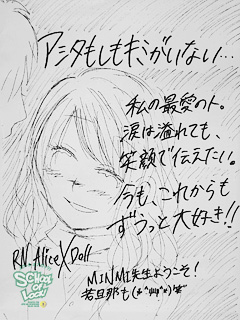 アシタもしもキミがいない…
私の最愛の人。
涙は溢れても、
笑顔で伝えたい。
今も、これからも
ずうっと大好き!!
RN.AliceXDoll
SCHOOL
OF
LOCK!
MINMI先生ようこそ!
若旦那も